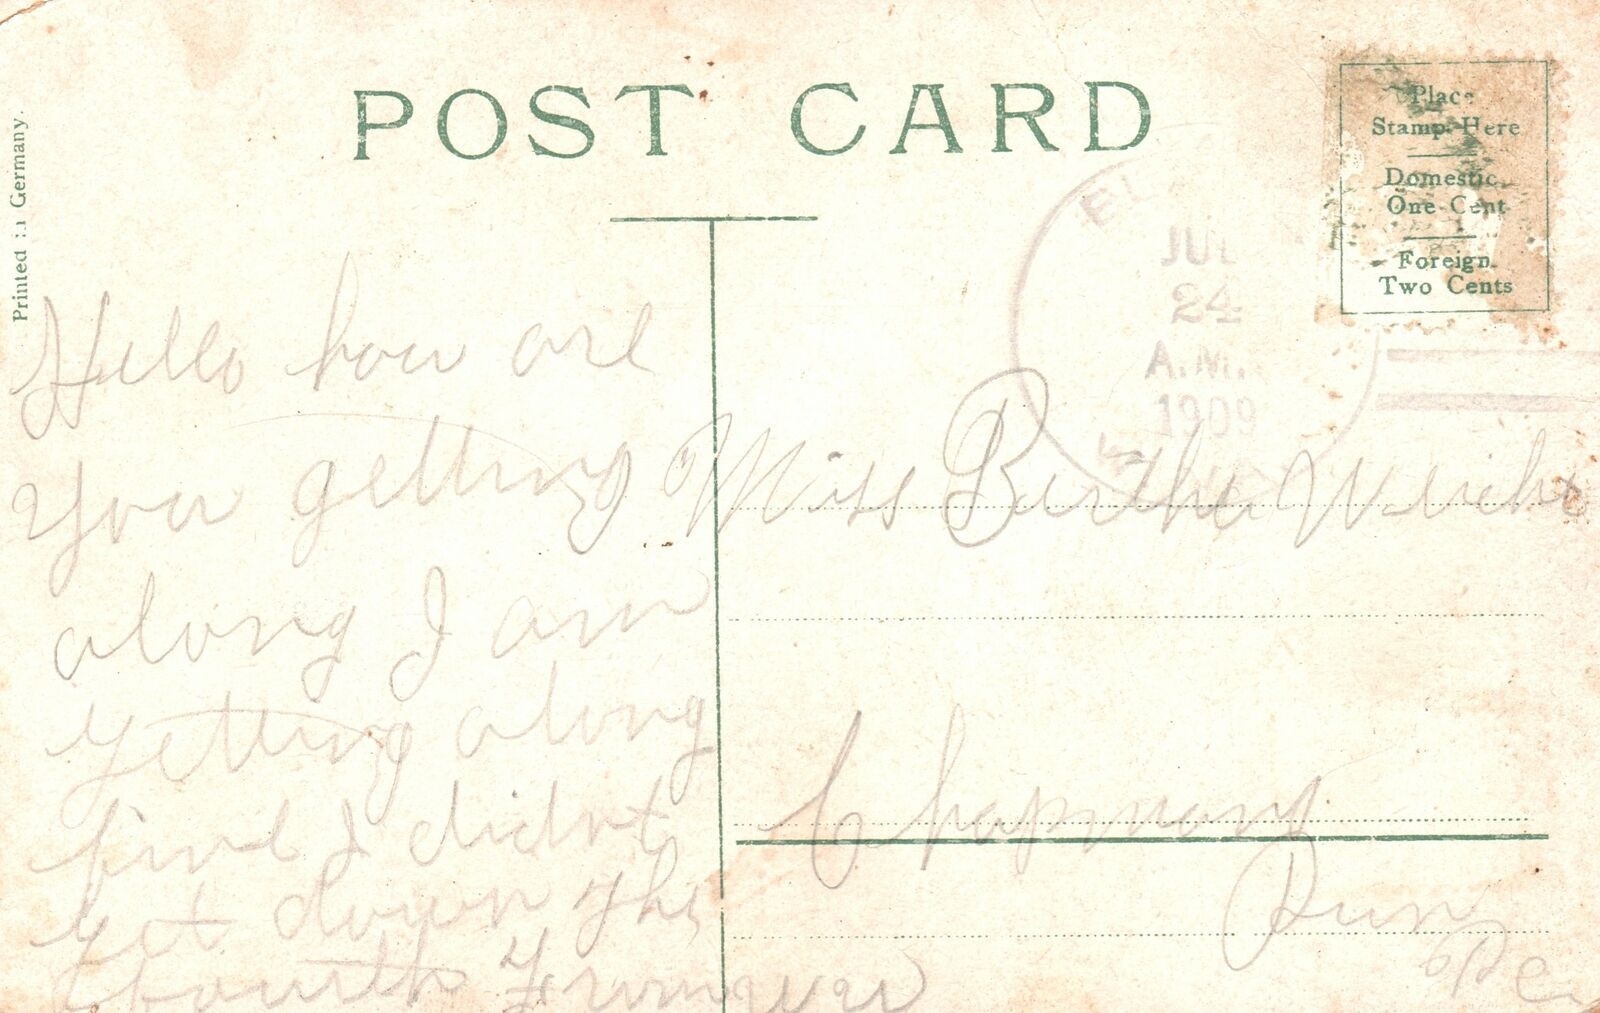 POST CARD
Printed in Germany.
Place
Stamp Here
Domestic
One Cent
Foreign
Two Cents
JUL
24
A.M.
1909
Hello how are
you getting
along I am
getting along
fine I didnt
get down the
fourth
Miss Bertha
Chapmans
Run
Pa